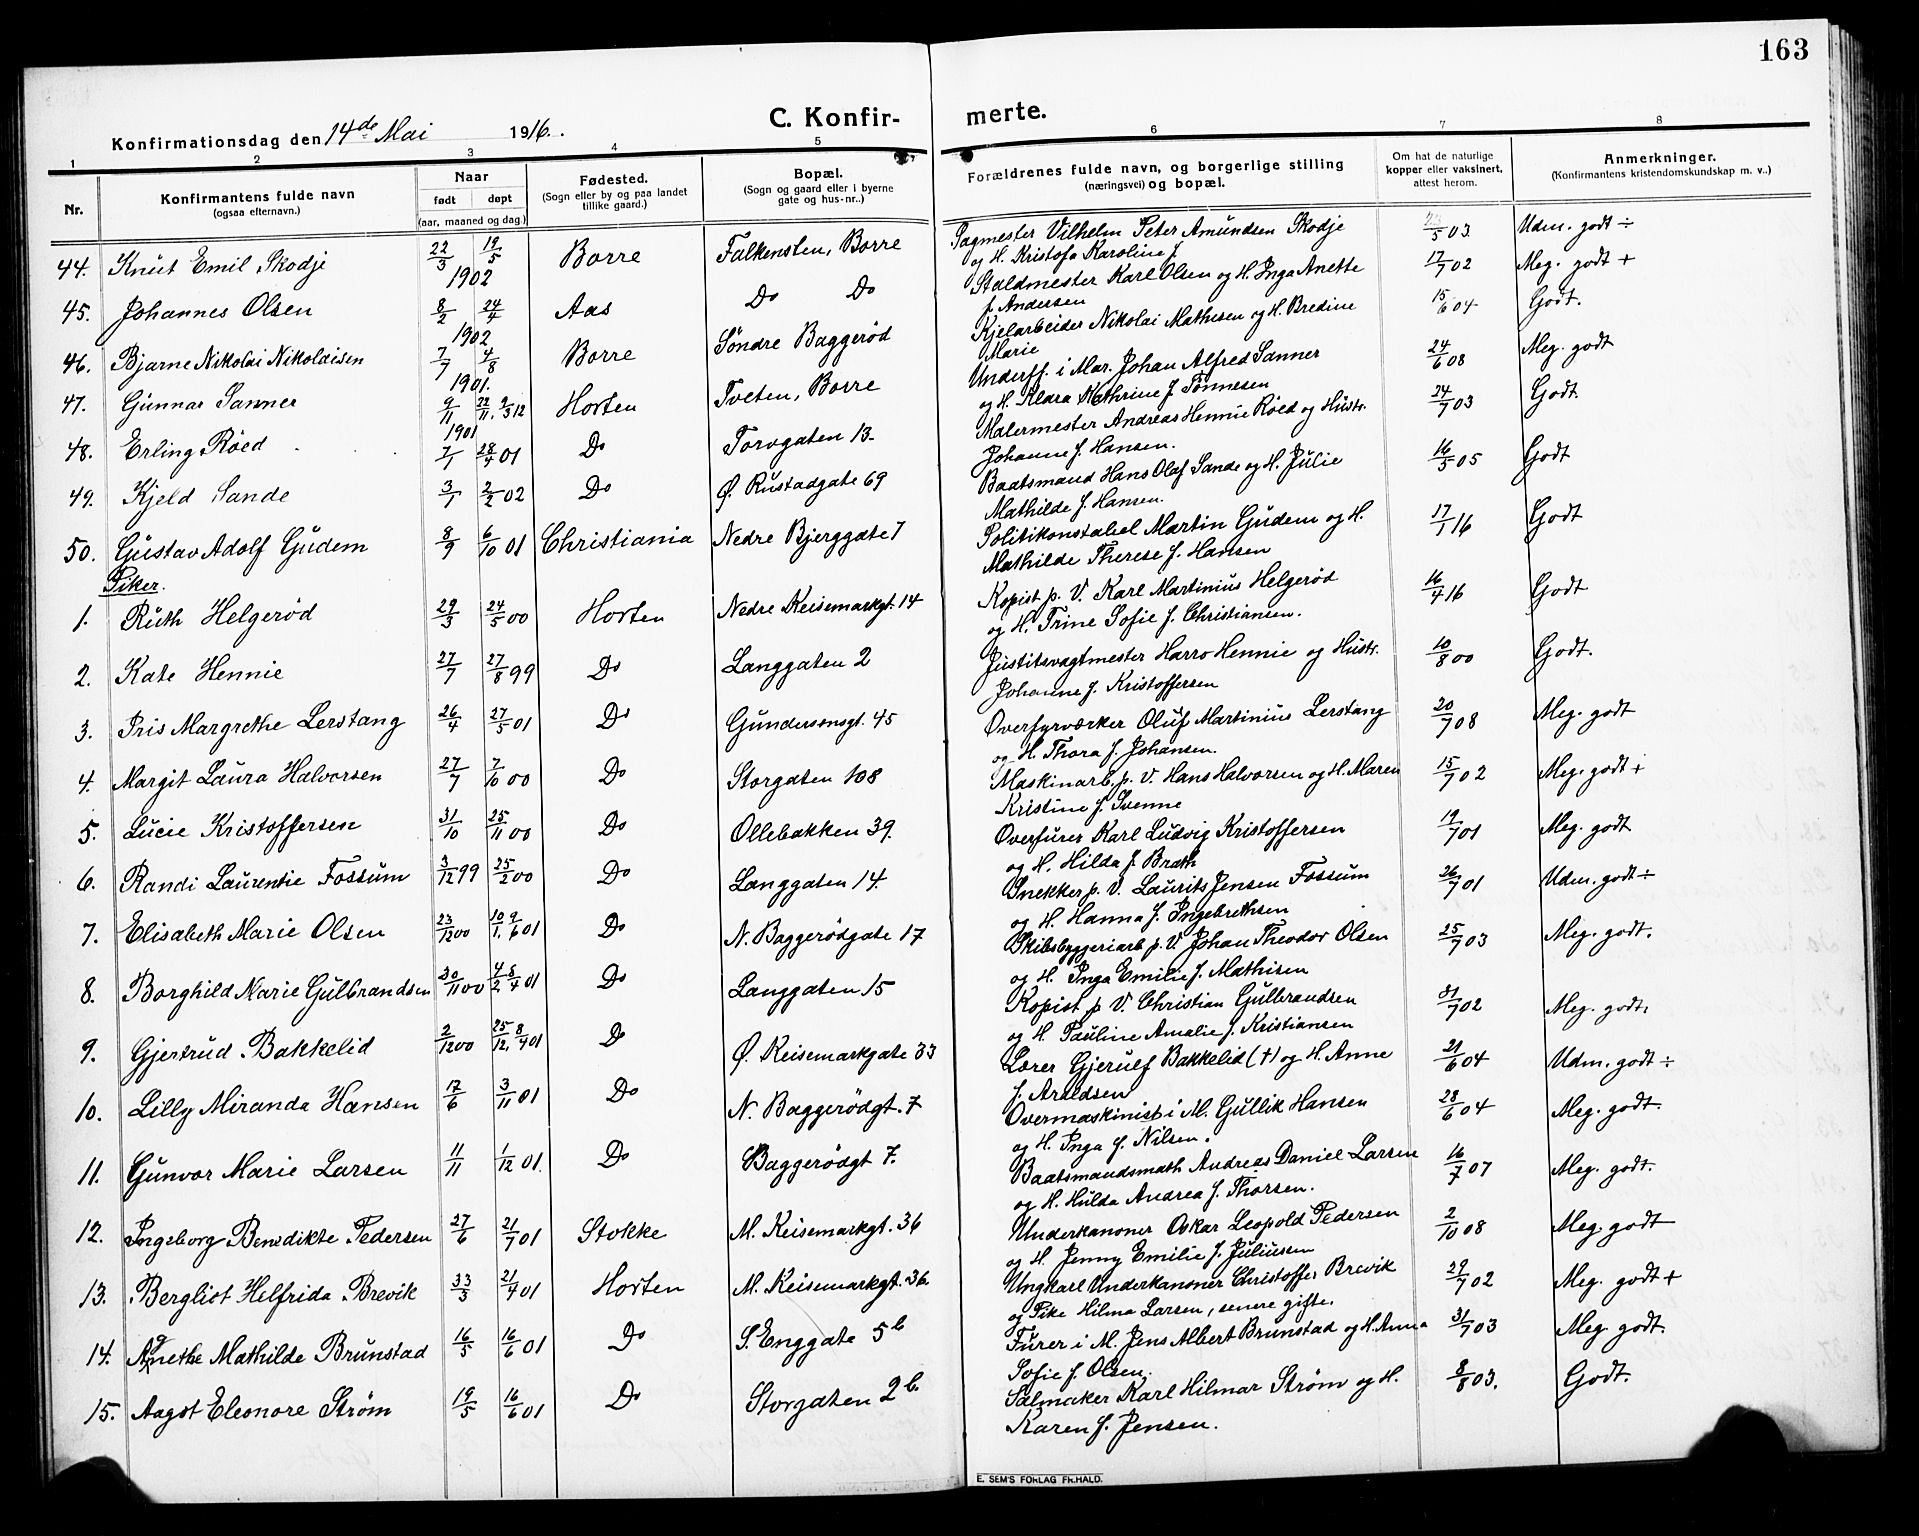 163
Konfirmationsdag den 14de Mai 1916.
C. Konfirmerte.
1 2 3 4 5 6 7 8
Nr.
Konfirmantens fulde navn
(ogsaa efternavn.)
Naar
født døpt
(aar, maaned og dag.)
Fødested.
(Sogn eller by og paa landet
tillike gaard.)
Bopæl.
(Sogn og gaard eller i byerne
gate og hus-nr..)
Forældrenes fulde navn, og borgerlige stilling
(næringsvei) og bopæl.
Om hat de naturlige
kopper eller vaksinert,
attest herom.
Anmerkninger.
(Konfirmantens kristendomskundskap m. v..)
44. Knut Emil Skodje 22/3 19/5 1902 Borre Falkensten, Borre Sagmester Vilhelm Peter Amundsen Skodje /5 03. Udm. godt ÷
og H. Kristofa Karoline f.
45. Johannes Olsen 8/2 24/4 1902 Aas Do Do Staldmester Karl Olsen og H. Inga Anette 17/7 02 Meg. godt +
f. Andersen
46. Bjarne Nikolai Nikolaisen 7/7 4/8 1901. Borre Søndre Baggerød Kjelarbeider Nikolai Mathisen og H. Bredine 15/6 04 Godt.
Marie
47. Gunnar Sanner 9/11 22/11, 9/3 12 1901 Horten Tveten, Borre Underff. i Mar. Johan Alfred Sanner 24/6 08 Meg. godt
og H. Klara Kathrine f. Tønnesen
48. Erling Røed 7/1 28/4 01 Do Torvgaten 13. Malermester Andreas Hennie Røed og Hustr. 24/7 03 Godt.
Johanne f. Hansen.
49. Kjeld Sande 3/1 2/2 02 Do Ø. Rustadgate 69 Baatsmand Hans Olaf Sande og H. Julie 16/5 05 Godt
Mathilde f. Hansen.
50. Gustav Adolf Gudem 8/9 6/10 01 Christiania Nedre Bjerggate 7 Politikonstabel Martin Gudem og H. 17/1 16 Godt
Mathilde Therese f. Hansen
Piker.
1. Ruth Helgerød 29/3 24/5 00 Horten Nedre Keisemarkgt. 14 Kopist p. V. Karl Martinius Helgerød 16/4 16 Godt
og H. Trine Sofie f. Christiansen.
2. Kate Hennie 27/7 27/8 99 Do Langgaten 2 Justitsvagtmester Harro Hennie og Hustr. 10/8 00 Godt.
Johanne f. Kristoffersen
3. Iris Margrethe Lerstang 26/4 27/5 01 Do Gundersensgt. 45 Overfyrværker Oluf Martinius Lerstang 20/7 08 Meg. godt
og H. Thora f. Johansen.
4. Margit Laura Halvorsen 27/7 7/10 00 Do Storgaten 108 Maskinarb. p. V. Hans Halvorsen og H. Maren 15/7 02 Meg. godt +
Kristine f. Svenne
5. Lucie Kristoffersen 31/10 25/11 00 Do Ollebakken 39. Overfurer Karl Ludvig Kristoffersen 19/7 01 Meg. godt
og H. Hilda f. Brath
6. Randi Laurentie Fossum 3/12 99 25/2 00 Do Langgaten 14. Snekker p. V. Laurits Jensen Fossum 26/7 01 Udm. godt ÷
og H. Hanna f. Ingebrethsen
7. Elisabeth Marie Olsen 23/12 00 10/1, 9/6 01 Do N. Baggerødgate 17 Skibsbyggeriarb p. V. Johan Theodor Olsen 25/7 03 Meg. godt.
og H. Inga Emilie f. Mathisen
8. Borghild Marie Gulbrandsen 30/11 00 4/2 8/4 01 Do Langgaten 15 Kopist p V. Christian Gulbrandsen 31/7 02 Meg. godt,
og H. Pauline Amalie f. Kristiansen
9. Gjertrud Bakkelid 2/12 00 25/12, 8/4 01 Do Ø. Keisemarkgate 33 Lærer Gjerulf Bakkelid (†) og H. Anne 21/6 04 Udm. godt ÷
f. Arildsen
10. Lilly Miranda Hansen 17/6 3/11 01 Do N. Baggerødgt. 7 Overmaskinist i M. Gullik Hansen 28/6 04 Meg. godt.
og H. Inga f. Nilsen.
11. Gunvor Marie Larsen 11/11 1/12 01. Do Baggerødgt 7. Baatsmandsmath Andreas Daniel Larsen 16/7 07 Meg. godt.
og H. Hulda Andrea f. Thorsen.
12. Ingeborg Benedikte Pedersen 27/6 21/7 01 Stokke M. Keisemarkgt. 36 Underkanoner Oskar Leopold Pedersen 2/10 08 Meg. godt
og H. Jenny Emilie f. Juliussen
13. Bergliot Helfrida Brevik 33/3 21/4 01 Horten M. Keisemarkgt. 36 Ungkarl Underkanoner Christoffer Brevik 29/7 02 Meg. godt +
og Pike Hilma Larsen, senere gifte.
14. Agnethe Mathilde Brunstad 16/5 16/6 01 Do S. Enggate 5b Furer i M. Jens Albert Brunstad og H. Anna 31/7 03 Meg. godt.
Sofie f. Olsen.
15. Aagot Eleonore Strøm 19/5 16/6 01 Do Storgaten 2b. Salmaker Karl Hilmar Strøm og H. 8/8 03. Godt.
Karen f. Jensen.
E. SEM'S FORLAG FR.HALD.